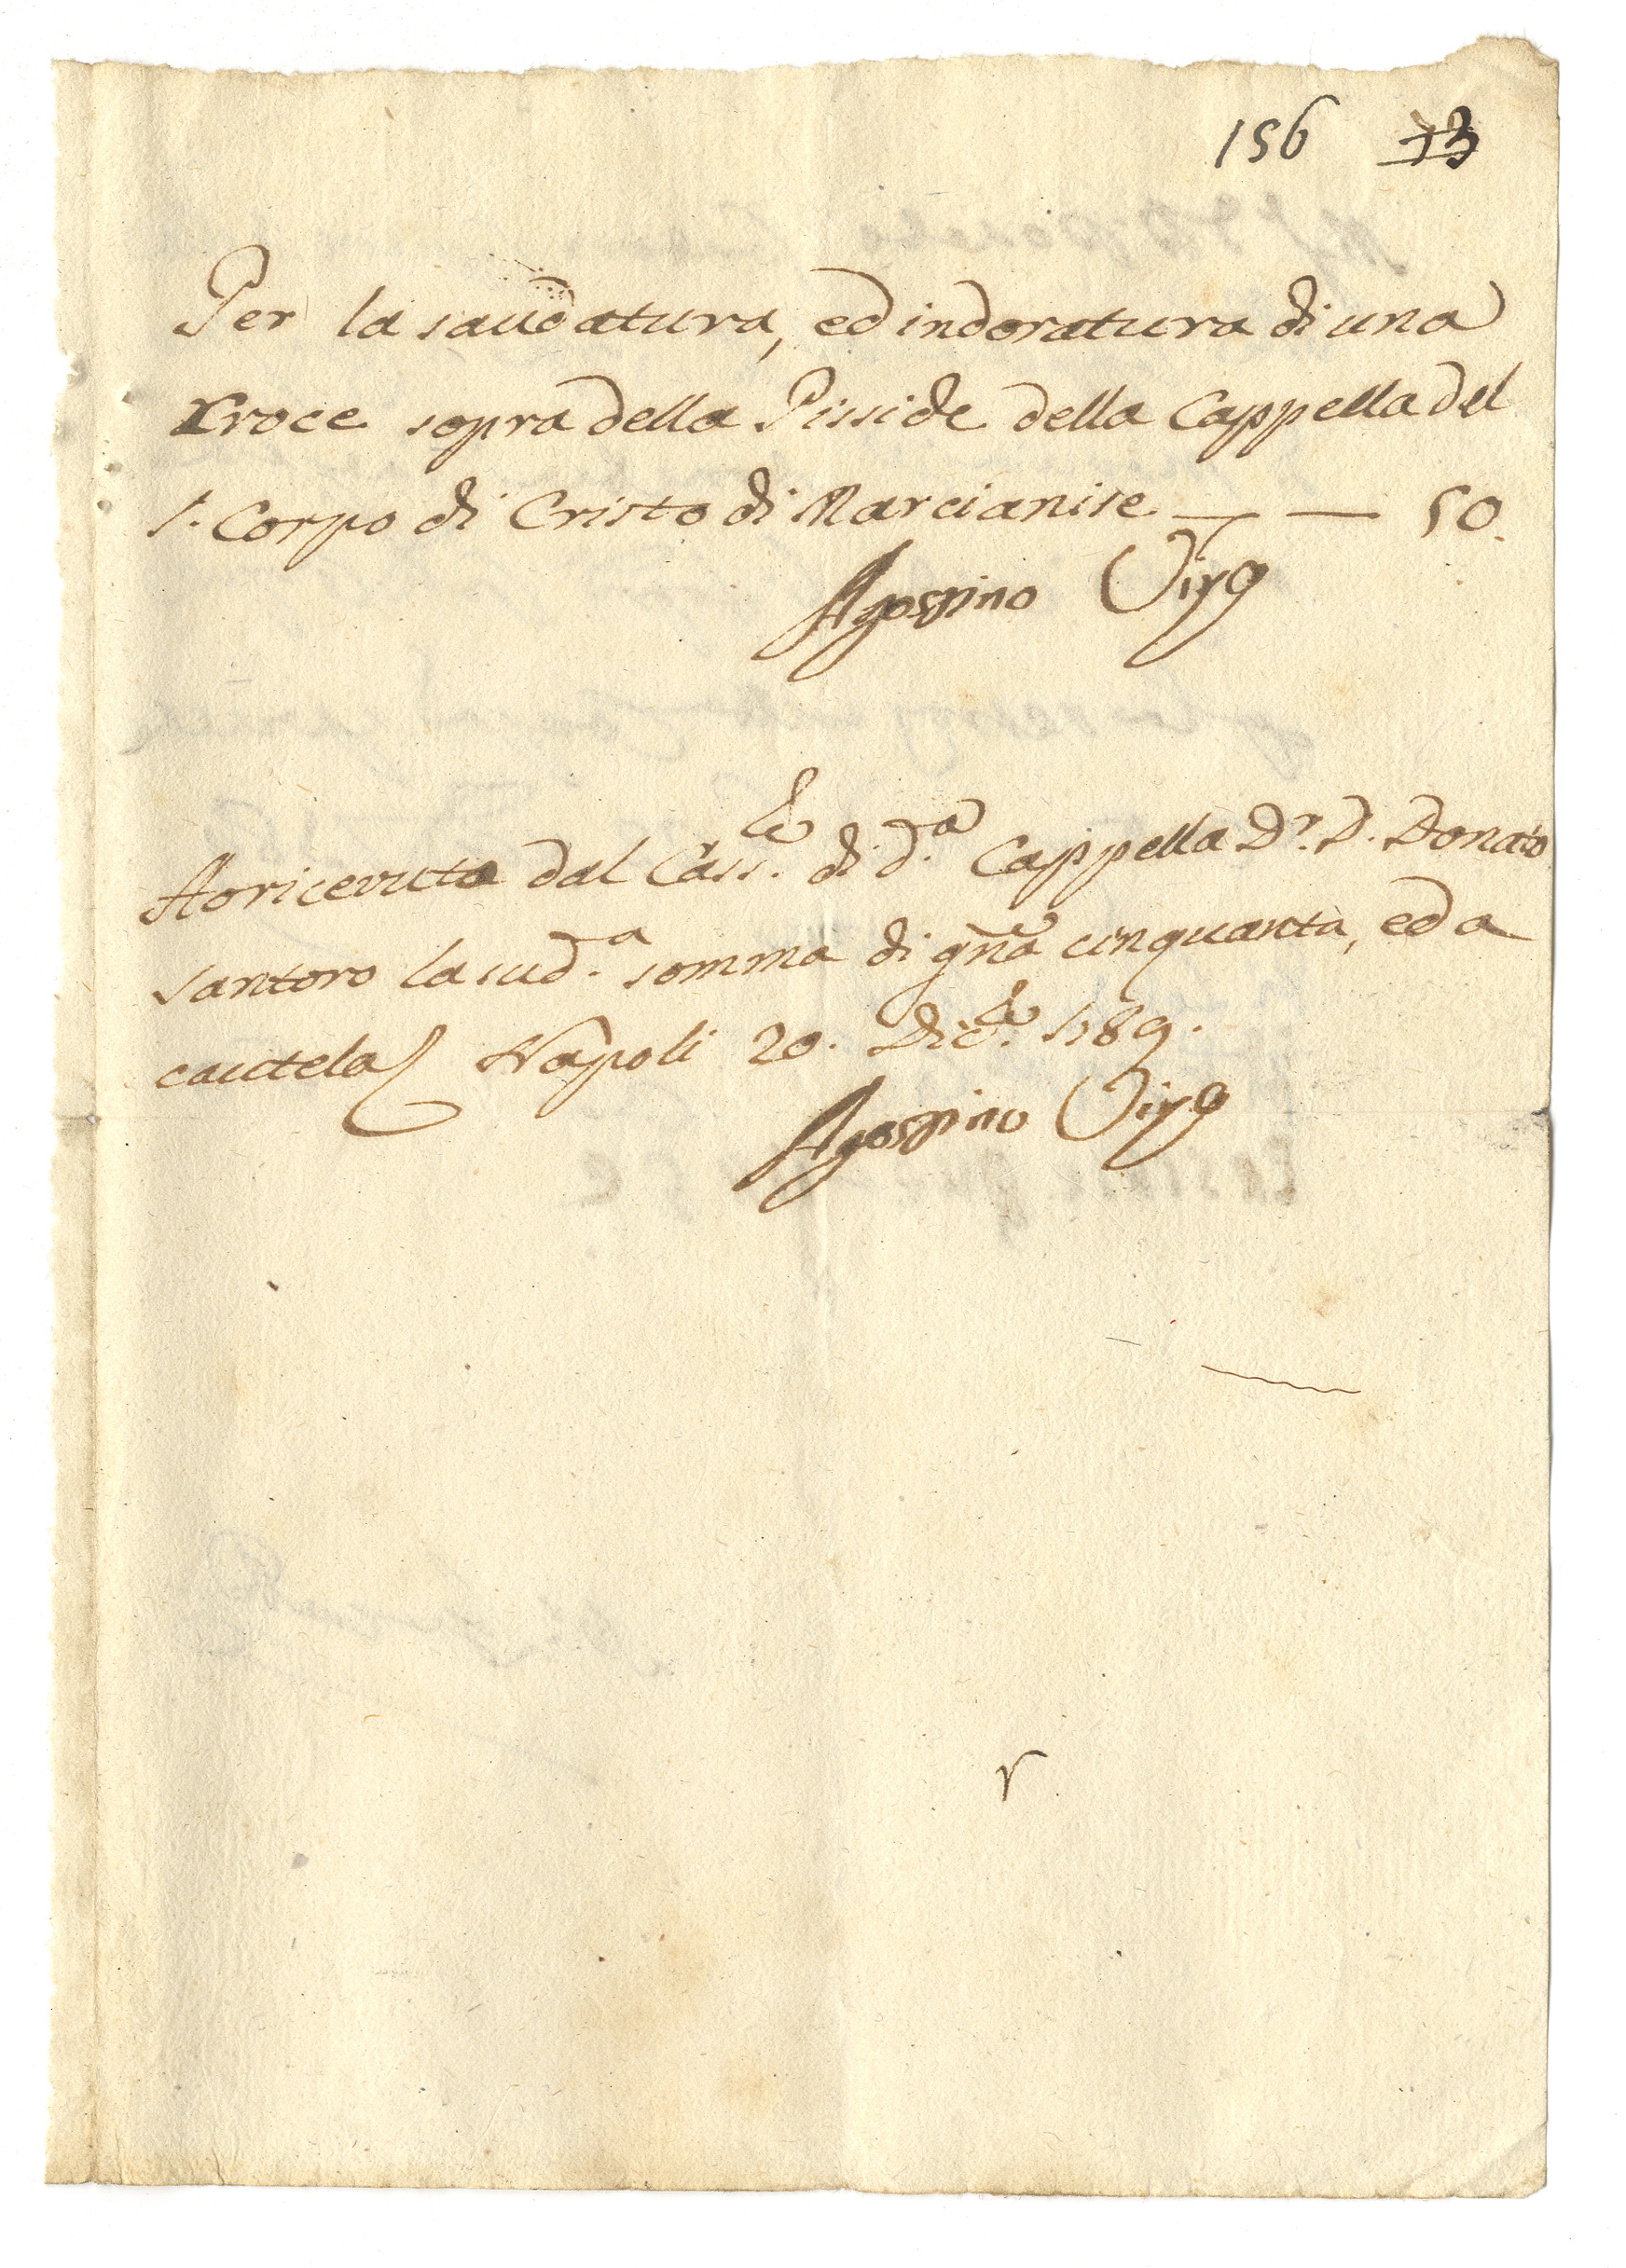 156 13
Per la saudatura, ed indoratura di una
Croce sopra della Pisside della Cappella del
S. Corpo di Cristo di Marcianise — — 50.
Agostino
Ho ricevuto dal Cass.re di d.a Cappella Dr. D. Donato
Santoro la sud.a somma di gna cinquanta, ed a
cautela Napoli 20. Dic.re 1789.
Agostino